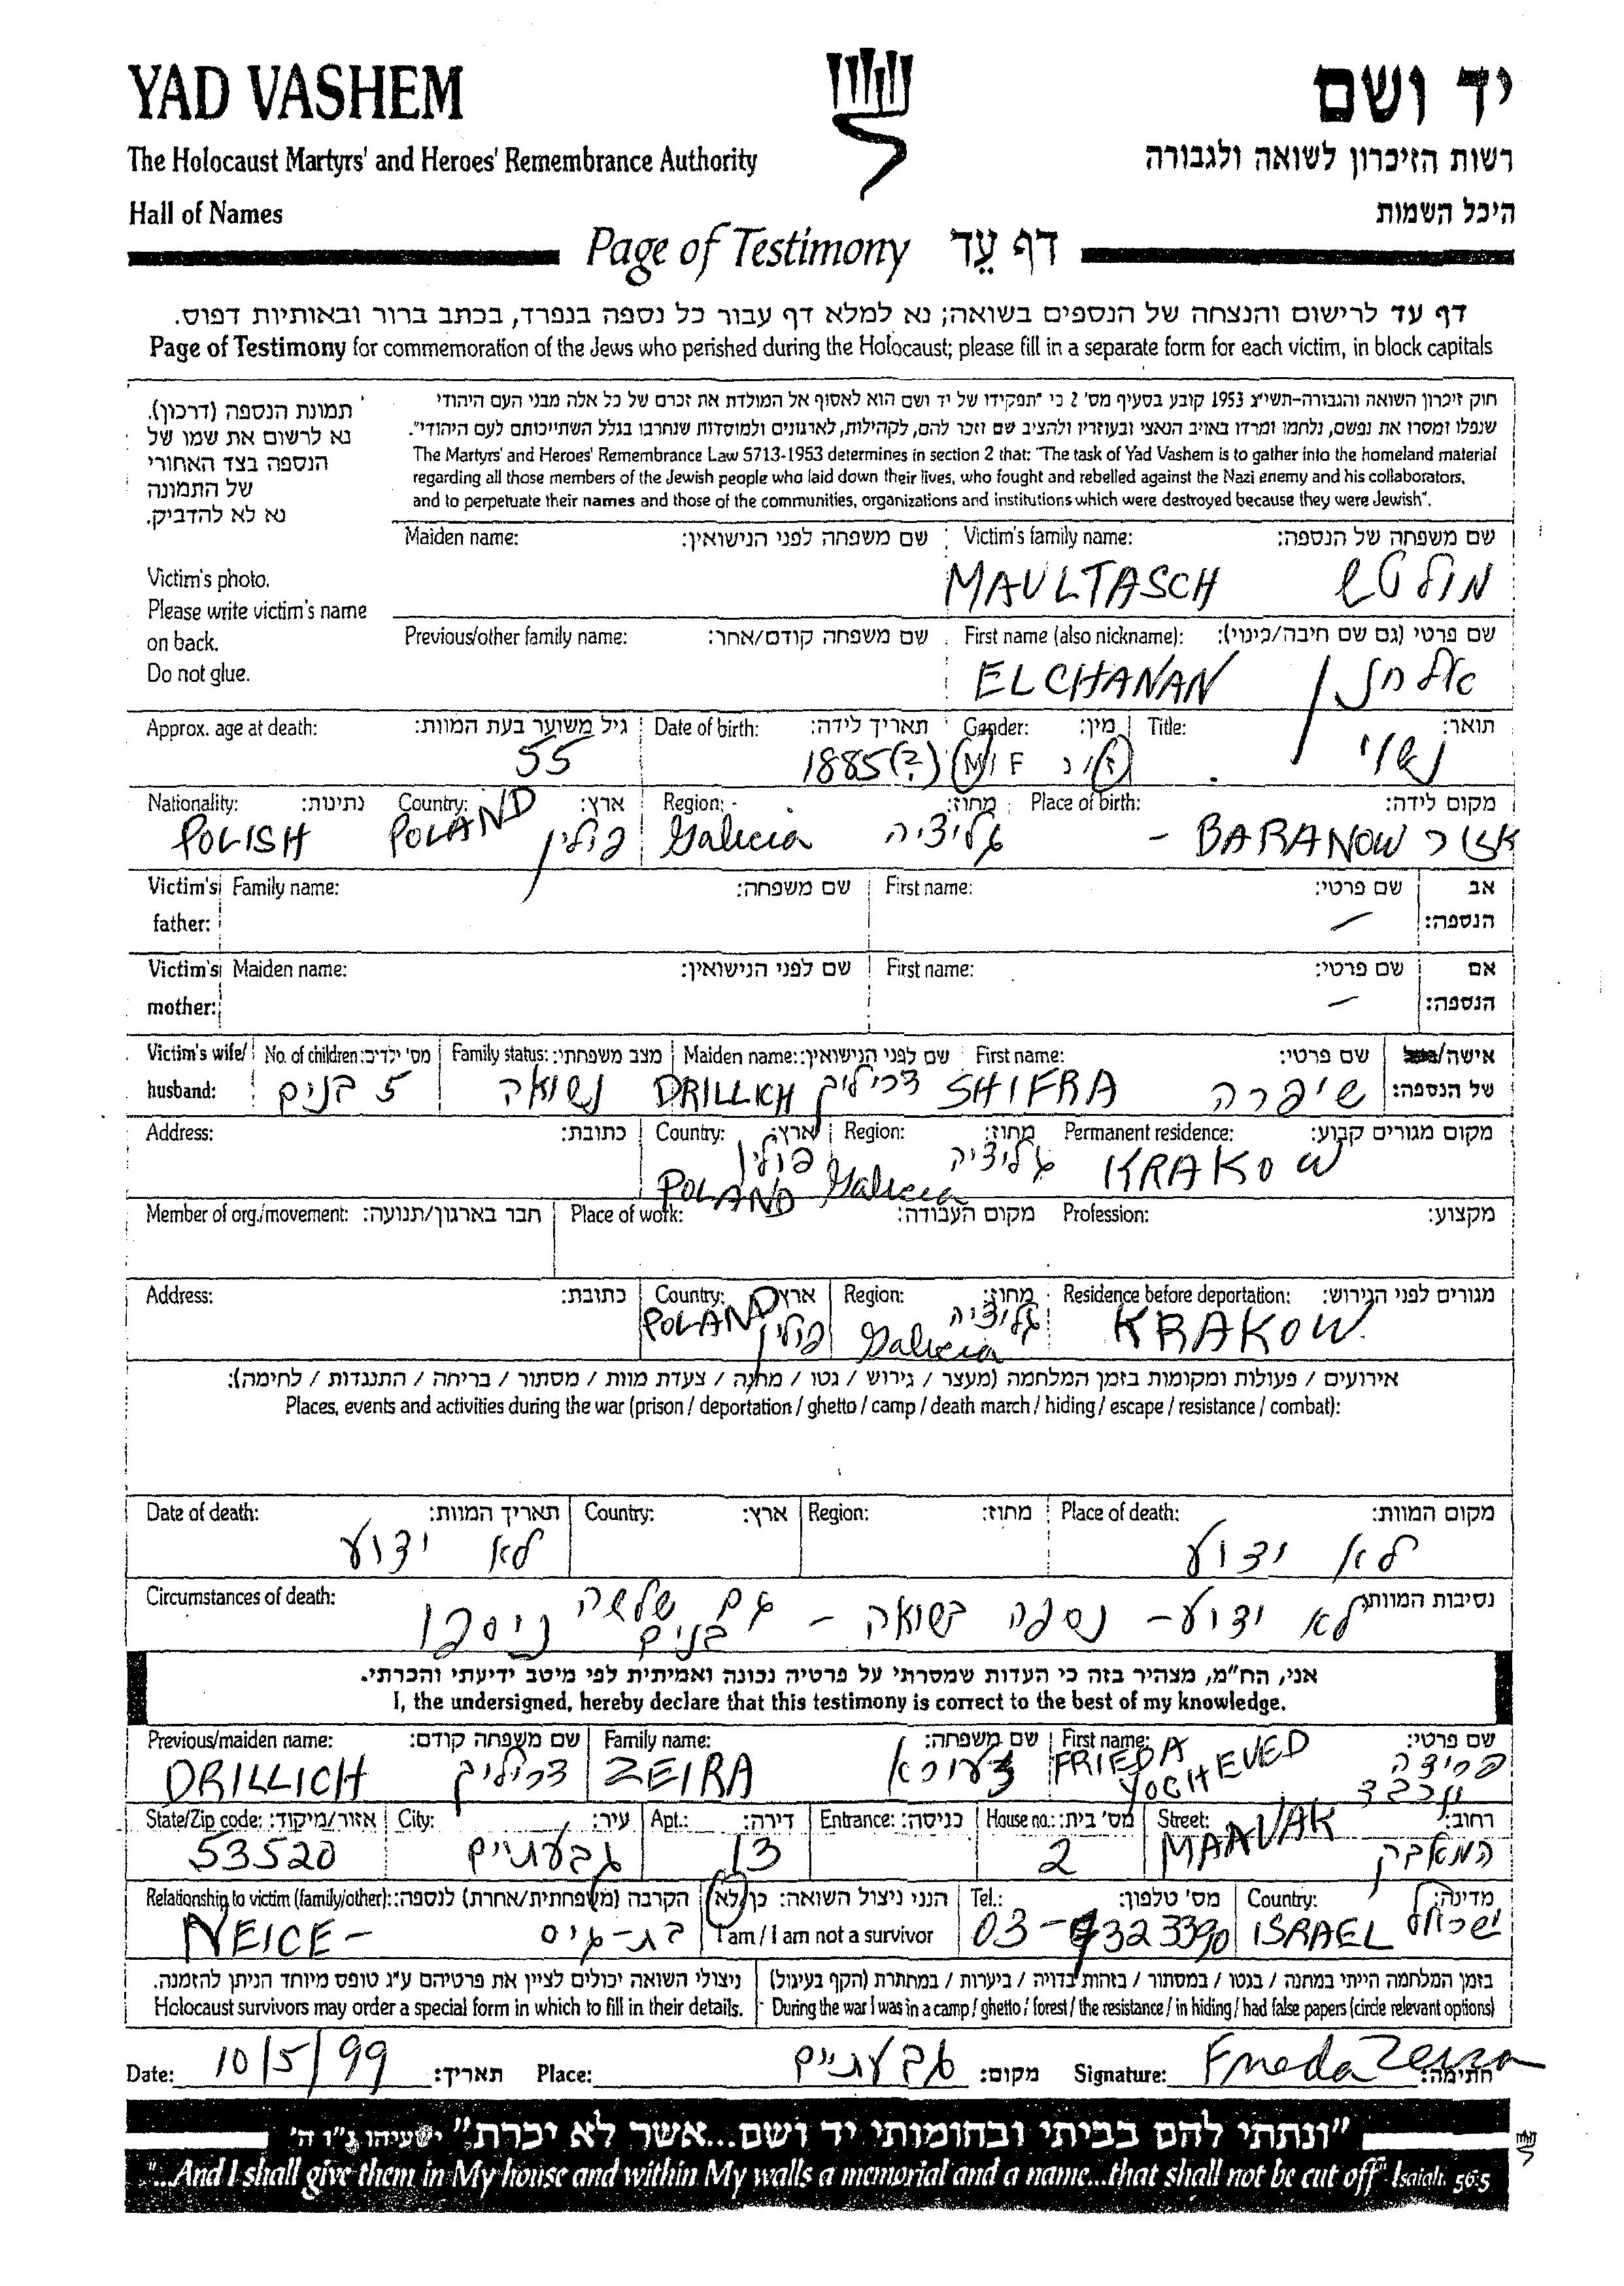 YAD VASHEM
יד ושם
The Holocaust Martyrs' and Heroes' Remembrance Authority
רשות הזיכרון לשואה ולגבורה
Hall of Names
היכל השמות
Page of Testimony דף עֵד
דף עד לרישום והנצחה של הנספים בשואה; נא למלא דף עבור כל נספה בנפרד, בכתב ברור ובאותיות דפוס.
Page of Testimony for commemoration of the Jews who perished during the Holocaust; please fill in a separate form for each victim, in block capitals
תמונת הנספה (דרכון).
נא לרשום את שמו של
הנספה בצד האחורי
של התמונה
נא לא להדביק.
Victim's photo.
Please write victim's name
on back.
Do not glue.
חוק זיכרון השואה והגבורה-תשי"ג 1953 קובע בסעיף מס' 2 כי "תפקידו של יד ושם הוא לאסוף אל המולדת את זכרם של כל אלה מבני העם היהודי
שנפלו ומסרו את נפשם, נלחמו ומרדו באויב הנאצי ובעוזריו ולהציב שם וזכר להם, לקהילות, לארגונים ולמוסדות שנחרבו בגלל השתייכותם לעם היהודי".
The Martyrs' and Heroes' Remembrance Law 5713-1953 determines in section 2 that: "The task of Yad Vashem is to gather into the homeland material
regarding all those members of the Jewish people who laid down their lives, who fought and rebelled against the Nazi enemy and his collaborators,
and to perpetuate their names and those of the communities, organizations and institutions which were destroyed because they were Jewish".
Maiden name: שם משפחה לפני הנישואין: Victim's family name: שם משפחה של הנספה:
MAULTASCH מולטש
Previous/other family name: שם משפחה קודם/אחר: First name (also nickname): שם פרטי (גם שם חיבה/כינוי):
ELCHANAN אלחנן
Approx. age at death: גיל משוער בעת המוות: Date of birth: תאריך לידה: Gender: מין: Title: תואר:
55 1885(?) M/F ז/נ נשוי
Nationality: נתינות: Country: ארץ: Region: מחוז: Place of birth: מקום לידה:
POLISH POLAND פולין Galicia גליציה - BARANOW אזור
Victim's father: Family name: שם משפחה: First name: שם פרטי: אב הנספה:
Victim's mother: Maiden name: שם לפני הנישואין: First name: שם פרטי: אם הנספה:
Victim's wife/ husband: No. of children: מס' ילדים: Family status: מצב משפחתי: Maiden name: שם לפני הנישואין: First name: שם פרטי: אישה/ של הנספה:
5 בנים נשואה DRILLICH דריליך SHIFRA שיפרה
Address: כתובת: Country: ארץ: Region: מחוז: Permanent residence: מקום מגורים קבוע:
POLAND פולין Galicia גליציה KRAKOW
Member of org./movement: חבר בארגון/תנועה: Place of work: מקום העבודה: Profession: מקצוע:
Address: כתובת: Country: ארץ Region: מחוז: Residence before deportation: מגורים לפני הגירוש:
POLAND פולין Galicia גליציה KRAKOW
אירועים / פעולות ומקומות בזמן המלחמה (מעצר / גירוש / גטו / מחנה / צעדת מוות / מסתור / בריחה / התנגדות / לחימה):
Places, events and activities during the war (prison / deportation / ghetto / camp / death march / hiding / escape / resistance / combat):
Date of death: תאריך המוות: Country: ארץ: Region: מחוז: Place of death: מקום המוות:
לא ידוע לא ידוע
Circumstances of death: נסיבות המוות:
לא ידוע - נספה בשואה - גם שלשה בנים ניספו
אני, הח"מ, מצהיר בזה כי העדות שמסרתי על פרטיה נכונה ואמיתית לפי מיטב ידיעתי והכרתי.
I, the undersigned, hereby declare that this testimony is correct to the best of my knowledge.
Previous/maiden name: שם משפחה קודם: Family name: שם משפחה: First name: שם פרטי:
DRILLICH דריליך ZEIRA זעירא FRIEDA YOCHEVED פרידה יוכבד
State/Zip code: אזור/מיקוד: City: עיר: Apt.: דירה: Entrance: כניסה: House no.: מס' בית: Street: רחוב:
53520 גבעתיים 13 2 MAAVAK המאבק
Relationship to victim (family/other): הקרבה (משפחתית/אחרת) לנספה: הנני ניצול השואה: כן/לא Tel.: מס' טלפון: Country: מדינה:
NEICE - בת-גיס I am / I am not a survivor 03- ISRAEL ישראל
ניצולי השואה יכולים לציין את פרטיהם ע"ג טופס מיוחד הניתן להזמנה. בזמן המלחמה הייתי במחנה / בגטו / במסתור / בזהות בדויה / ביערות / במחתרת (הקף בעיגול)
Holocaust survivors may order a special form in which to fill in their details. During the war I was in a camp / ghetto / forest / the resistance / in hiding / had false papers (circle relevant options)
Date: 10/5/99 תאריך: Place: גבעתיים מקום: Signature: Frieda Zeira חתימה:
"ונתתי להם בביתי ובחומותי יד ושם...אשר לא יכרת" ישעיהו נ"ו ה'
"...And I shall give them in My house and within My walls a memorial and a name...that shall not be cut off" Isaiah. 56:5